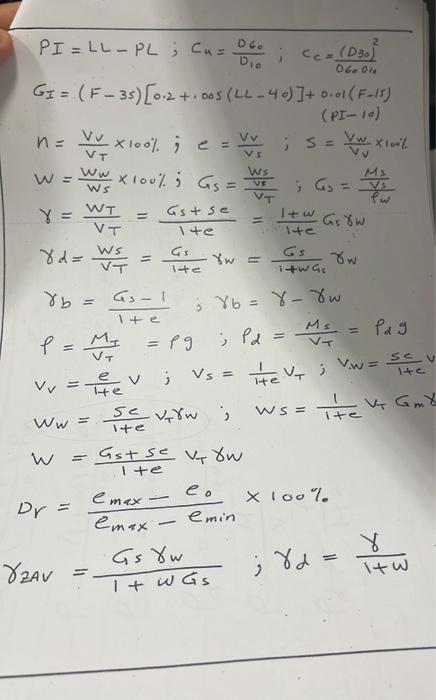 PI = LL - PL ; Cu = D60/D10 ; Cc = (D30)²/D60 D10
GI = (F-35)[0.2+.005(LL-40)]+0.01(F-15)
(PI-10)
n = Vv/VT × 100% ; e = Vv/Vs ; S = Vw/Vv × 100%
W = Ww/Ws × 100% ; Gs = Ws/Vs/VT ; Gs = Ms/Vs/ρw
γ = WT/VT = Gs+Se/1+e = 1+w/1+e Gs γw
γd = Ws/VT = Gs/1+e γw = Gs/1+wGs γw
γb = Gs-1/1+e ; γb = γ - γw
ρ = MT/VT = ρg ; ρd = Ms/VT = ρdg
Vv = e/1+e V ; Vs = 1/1+e VT ; Vw = Se/1+e V
Ww = Se/1+e VT γw ; Ws = 1/1+e VT Gm γ
W = Gs+Se/1+e VT γw
Dr = emax - eo/emax - emin × 100%
γZAV = Gs γw/1 + w Gs ; γd = γ/1+w